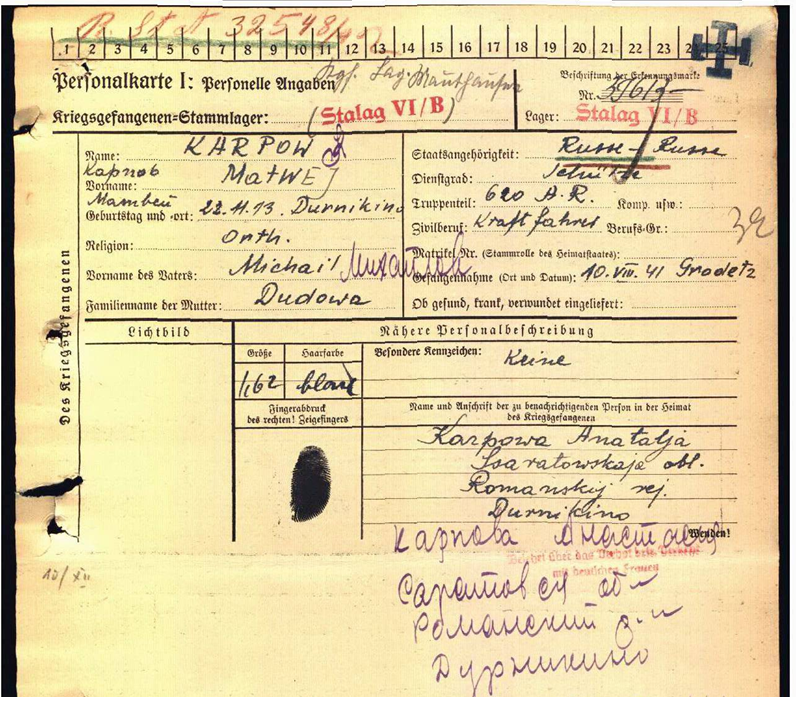 R St A 32548/42
.1 2 3 4 5 6 7 8 9 10 11 12 13 14 15 16 17 18 19 20 21 22 23 24 25
Personalkarte I: Personelle Angaben
Kgf. Lag. Mauthausen
Kriegsgefangenen=Stammlager: (Stalag VI/B)
Beschriftung der Erkennungsmarke
Nr.
Lager: Stalag VI/B
Des Kriegsgefangenen
Name: KARPOW
Карпов
Vorname: MATWEJ
Матвей
Geburtstag und =ort: 22.11.13. Durnikino
Religion: Orth.
Vorname des Vaters: Michail Михайлов
Familienname der Mutter: Dudowa
Staatsangehörigkeit: Russe – Russe
Dienstgrad:
Truppenteil: 620 A.R. Komp. usw.:
Zivilberuf: Kraftfahrer Berufs=Gr.:
Matrikel Nr. (Stammrolle des Heimatstaates):
Gefangennahme (Ort und Datum): 10.VIII.41 Gradetz
Ob gesund, krank, verwundet eingeliefert:
Lichtbild
Nähere Personalbeschreibung
Größe Haarfarbe
1,62 blond
Besondere Kennzeichen: Keine
Fingerabdruck
des rechten! Zeigefingers
Name und Anschrift der zu benachrichtigenden Person in der Heimat
des Kriegsgefangenen
Karpowa Anatalja
Ssaratowskaje obl.
Romanskij rej.
Durnikino
Wenden!
Карпова Анастасия
Belehrt über das Verbot des Verkehrs
mit deutschen Frauen
10/XII
Саратовск обл
Романский р-н
Дурникино